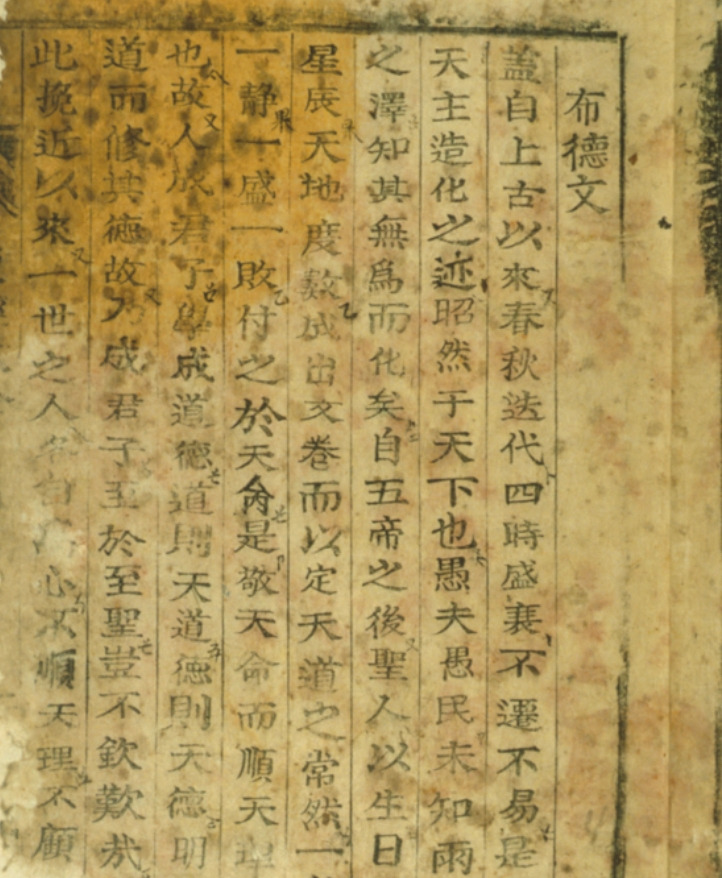 布德文
盖自上古以來春秋迭代四時盛衰不遷不易是
天主造化之迹昭然于天下也愚夫愚民未知雨
之澤知其無爲而化矣自五帝之後聖人以生日
星辰天地度數成出文卷而以定天道之常然一
一静一盛一敗付之於天命是敬天命而順天理
也故人成君子學成道德道則天道德則天德明
道而修其德故乃成君子至於至聖豈不欽歎哉
此挽近以來一世之人各自心不順天理不顧